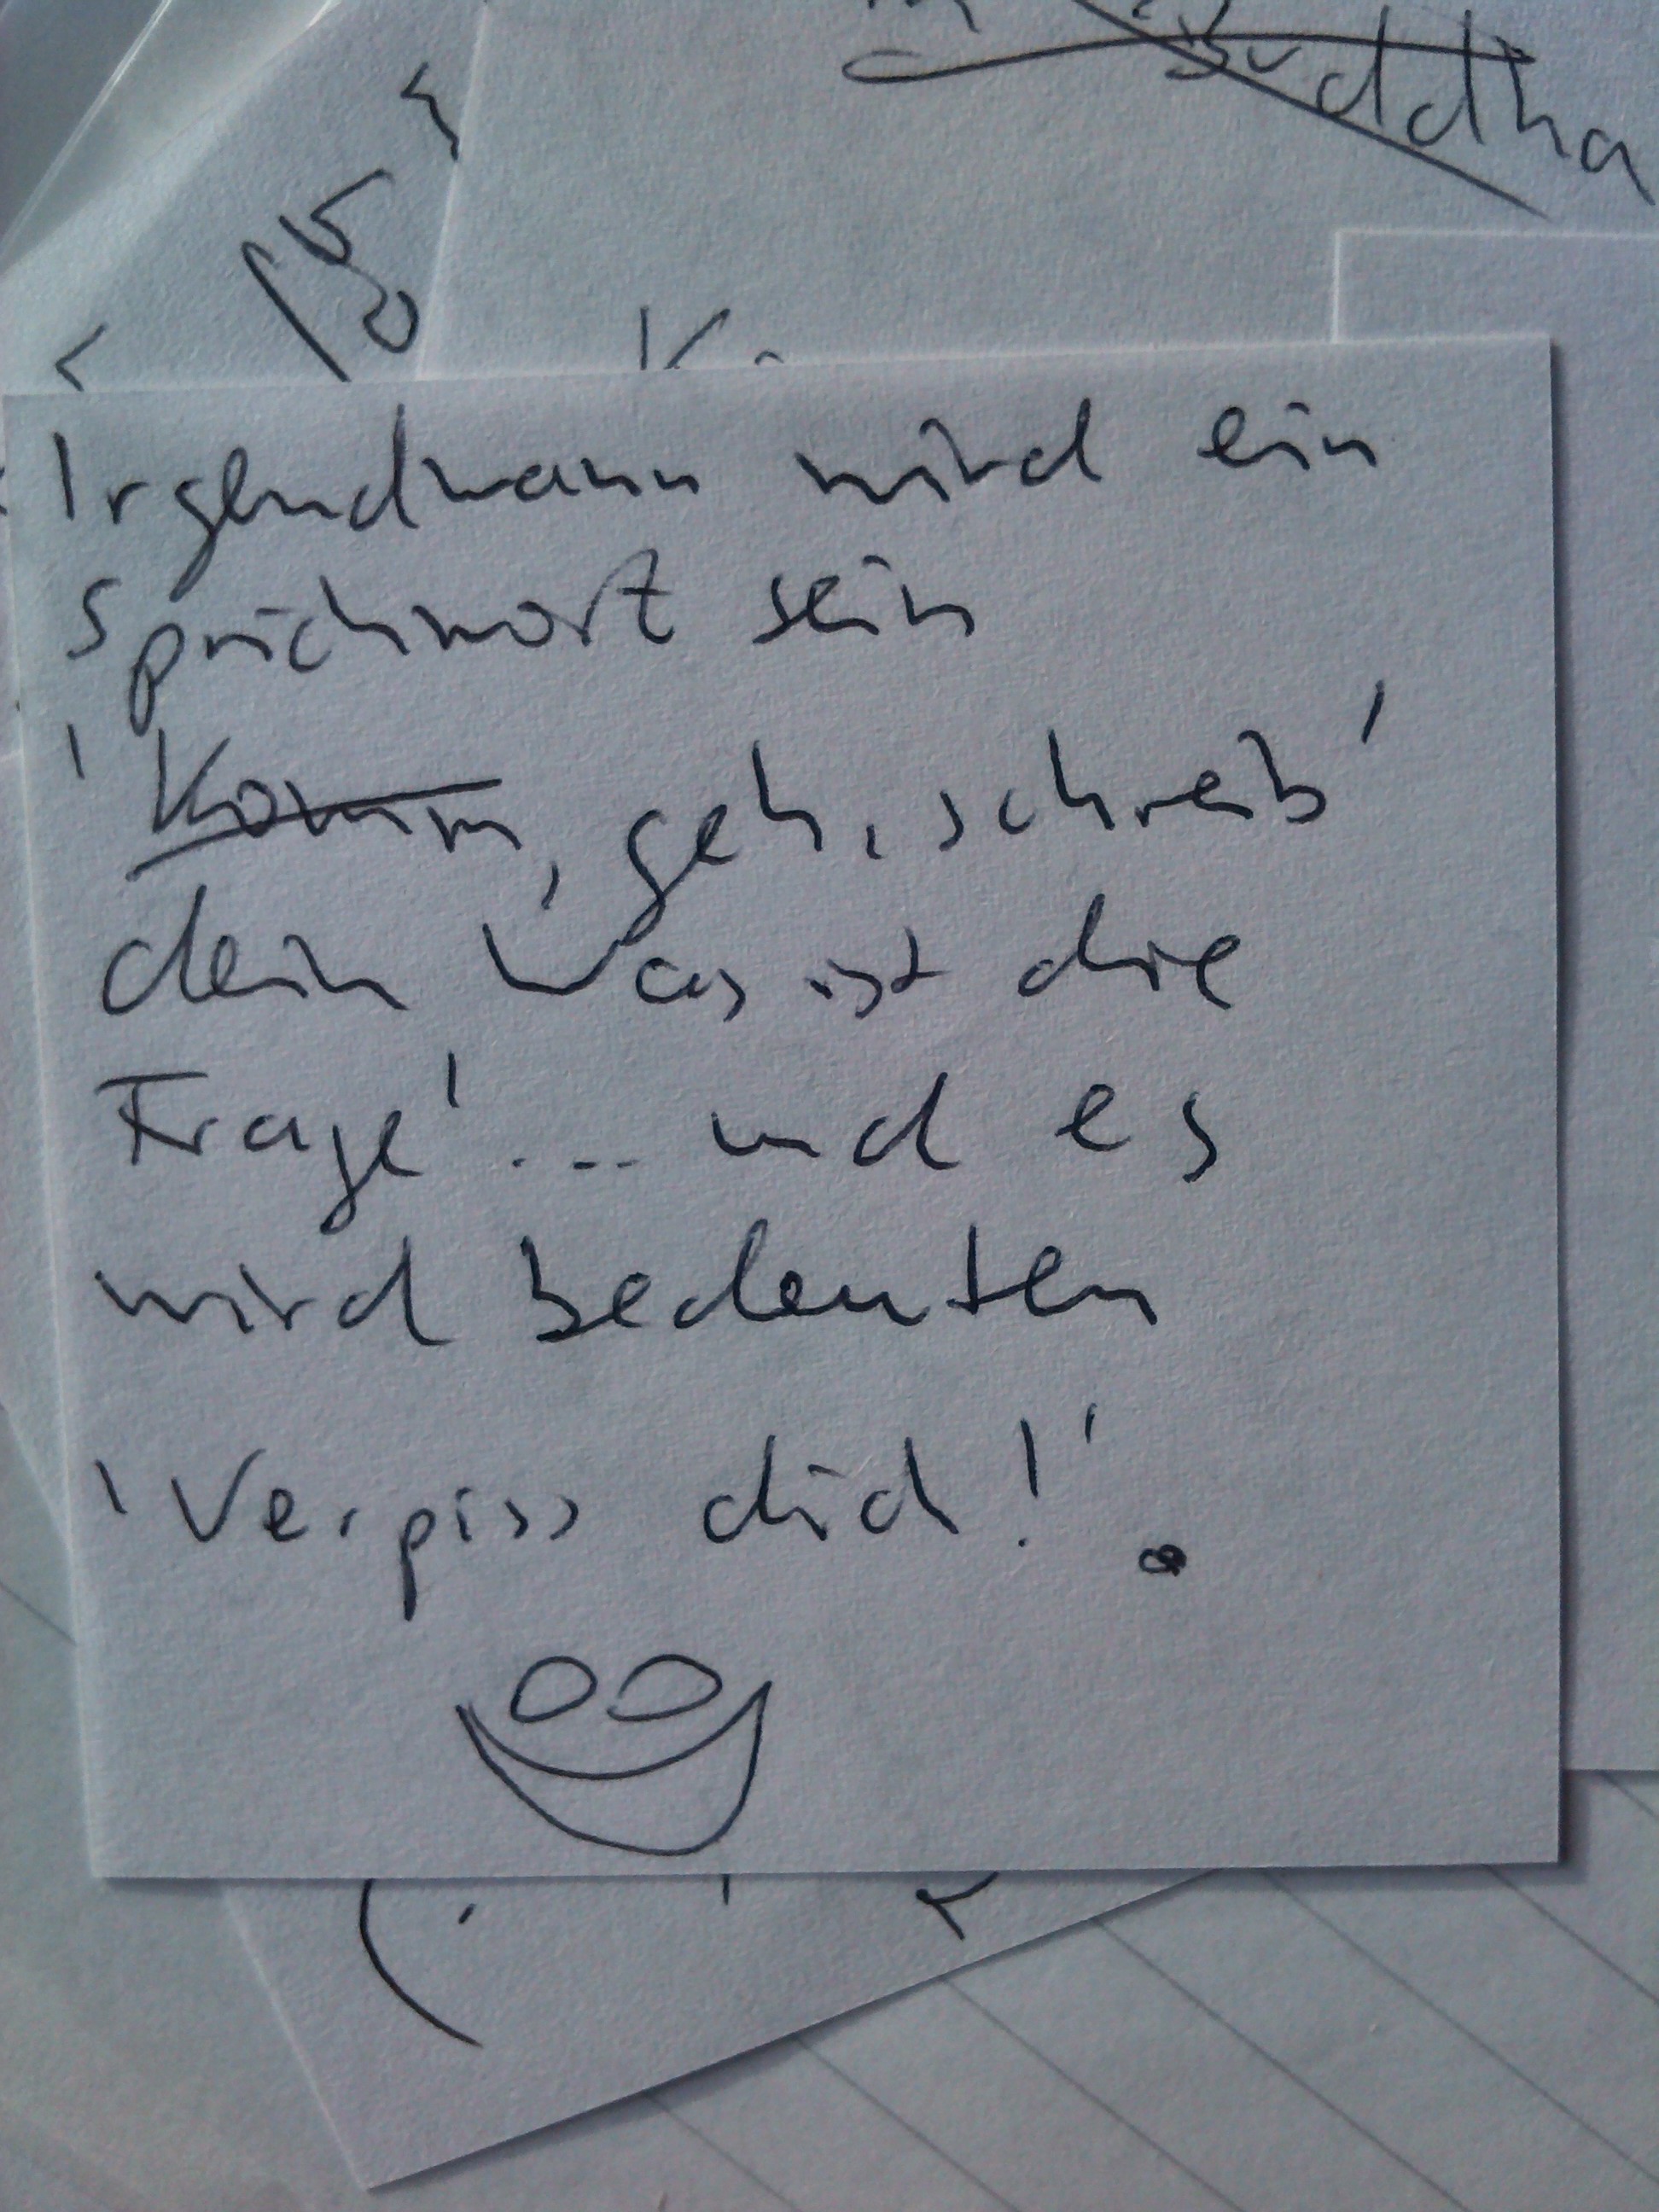 Buddha
Irgendwann wird ein
Sprichwort sein
'Komm, geh, schreib'
dein Was ist die
Frage'... und es
wird bedeuten
'Verpiss dich!'.